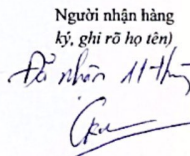 Người nhận hàng
ký, ghi rõ họ tên)
Đã nhận 11 thùng